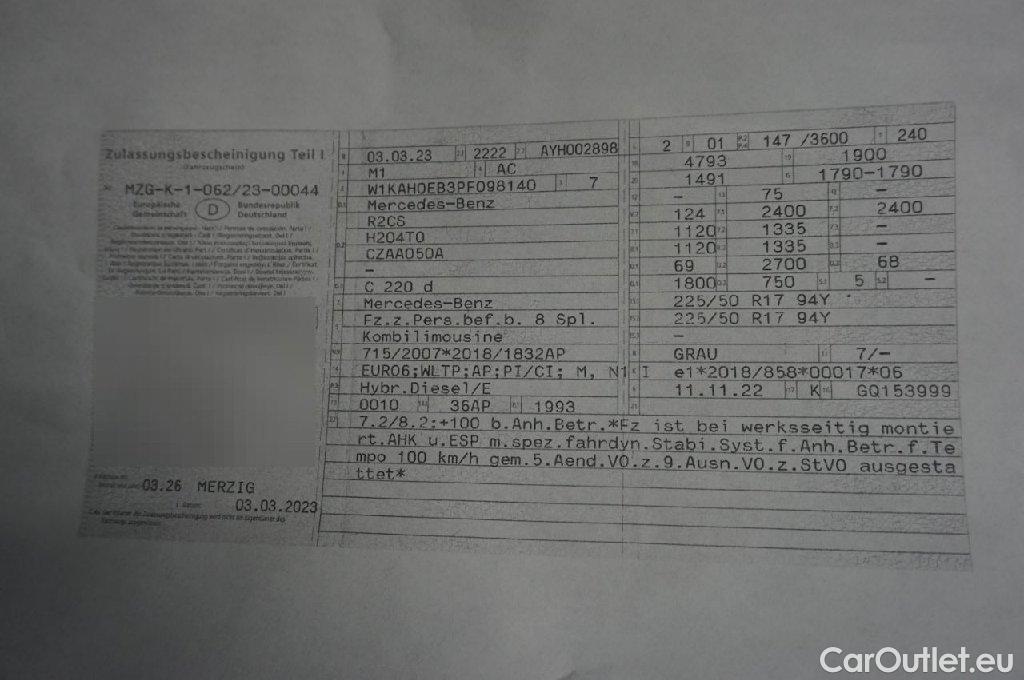 Zulassungsbescheinigung Teil I
(Fahrzeugschein)
MZG-K-1-062/23-00044
Europäische Gemeinschaft
D
Bundesrepublik Deutschland
03.26 MERZIG
03.03.2023
03.03.23 2222 AYH002898
M1 AC
W1KAH0EB3PF098140 7
Mercedes-Benz
R2CS
H204T0
CZAA050A
–
C 220 d
Mercedes-Benz
Fz.z.Pers.bef.b. 8 Spl.
Kombilimousine
715/2007*2018/1832AP
EURO6;WLTP;AP;PI/CI; M, N1 I
Hybr.Diesel/E
0010 36AP 1993
2 01 147 /3600 240
4793 1900
1491 1790-1790
– 75 –
124 2400 2400
1120 1335 –
1120 1335 –
69 2700 68
1800 750 5 –
225/50 R17 94Y
225/50 R17 94Y
–
GRAU 7/–
e1*2018/858*00017*06
11.11.22 K GQ153999
7.2/8.2:+100 b.Anh.Betr.*Fz ist bei werksseitig montie
rt.AHK u.ESP m.spez.fahrdyn.Stabi.Syst.f.Anh.Betr.f.Te
mpo 100 km/h gem.5.Aend.VO.z.9.Ausn.VO.z.StVO ausgesta
ttet*
CarOutlet.eu